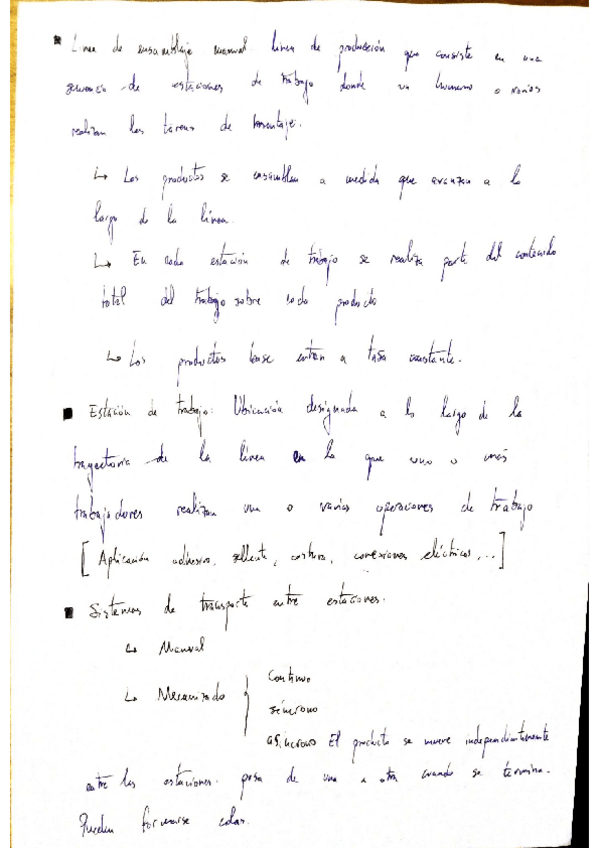 Linea de ensamblaje manual linea de producción que consiste en una
secuencia de estaciones de trabajo donde un humano o varios
realizan las tareas de montaje.
↳ Los productos se ensamblan a medida que avanzan a lo
largo de la línea.
↳ En cada estación de trabajo se realiza parte del contenido
total del trabajo sobre cada producto
↳ Los productos base entran a tasa constante.
Estación de trabajo: Ubicación designada a lo largo de la
trayectoria de la línea en la que uno o más
trabajadores realizan una o varias operaciones de trabajo
[Aplicación adhesivo, sellante, costura, conexiones eléctricas,...]
Sistemas de transporte entre estaciones.
↳ Manual
↳ Mecanizado { Continuo
síncrono
asíncrono El producto se mueve independientemente
entre las estaciones. pasa de una a otra cuando se termina.
Pueden formarse colas.